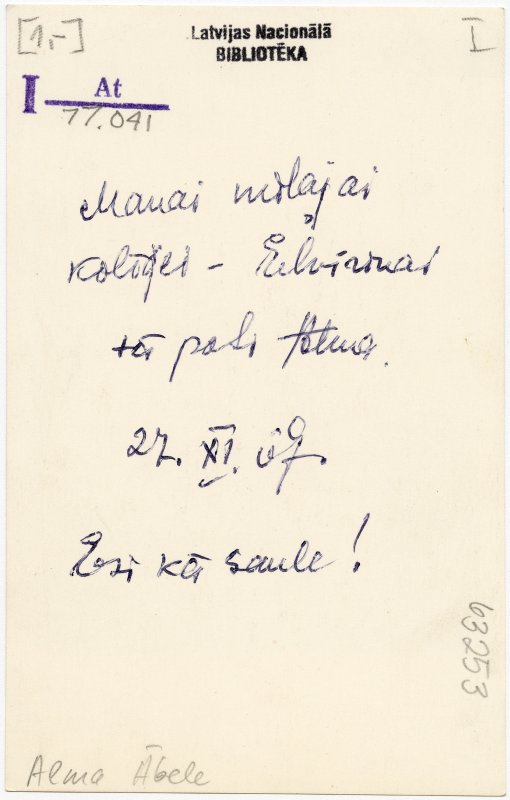 [1,-]
Latvijas Nacionālā
BIBLIOTĒKA
I
I At
77.041
Manai mīļajai
kolēģei -
tā pati Alma.
27. XI.
Esi kā saule!
63253
Alma Ābele